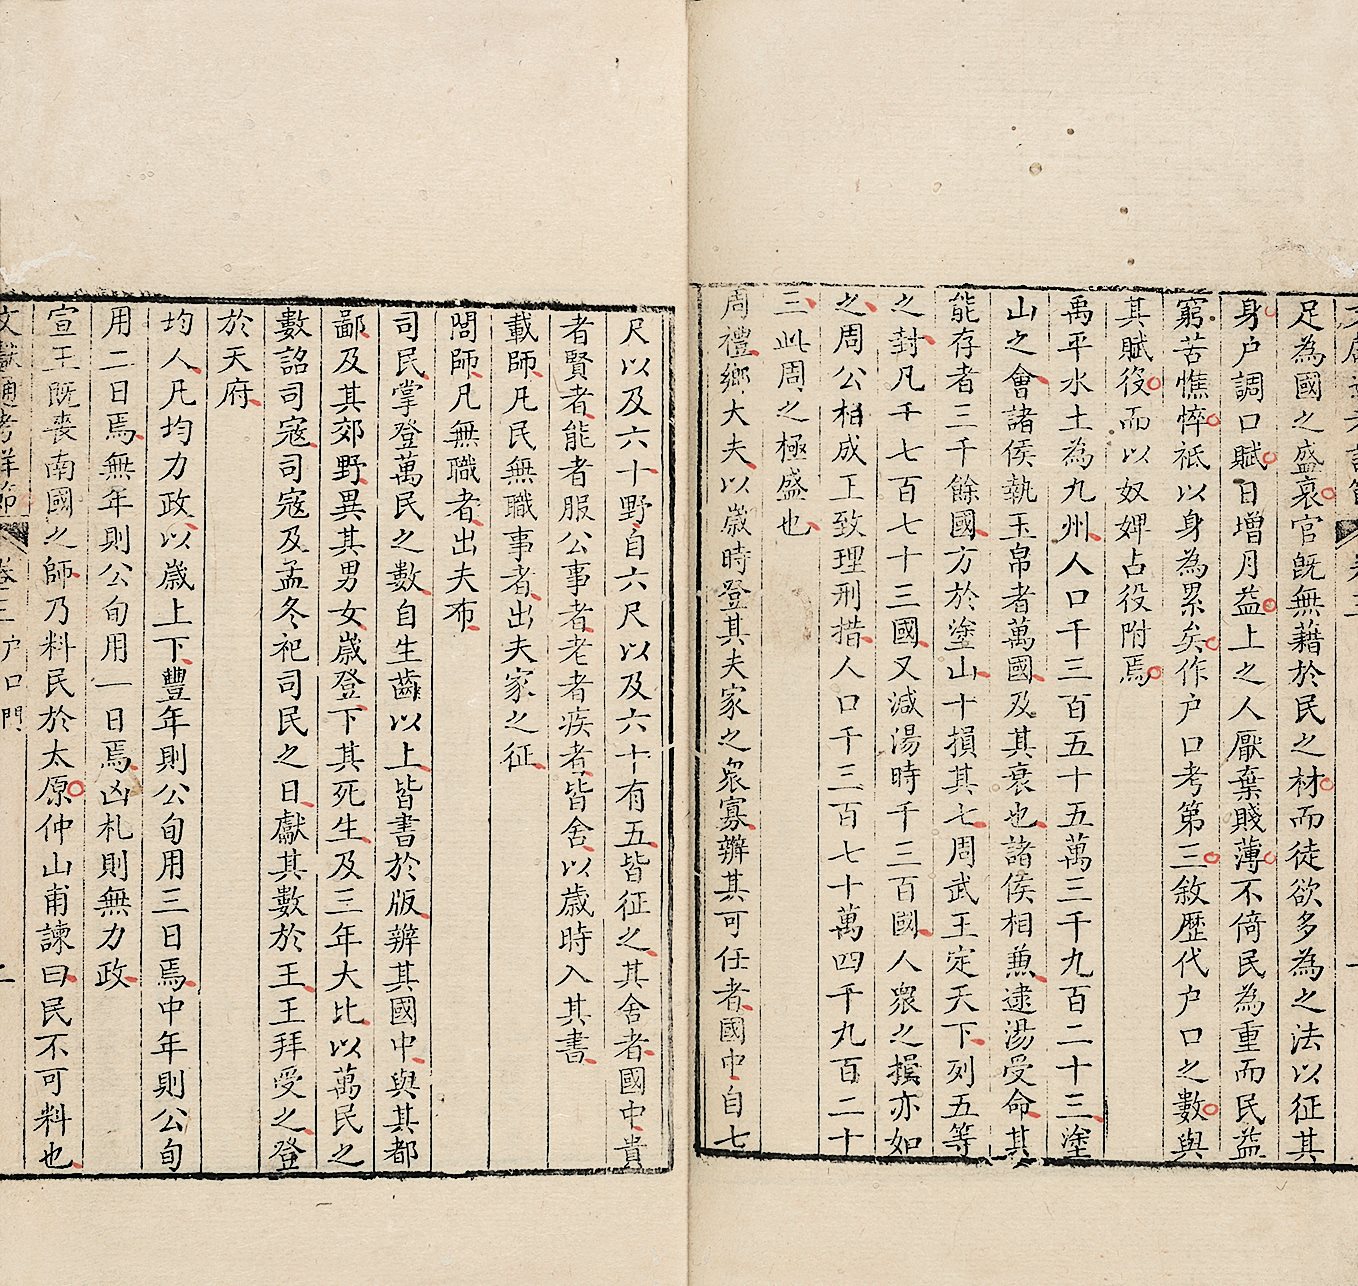 足為國之盛衰官既無藉於民之材而徒欲多為之法以征其
身户調口賦日增月益上之人厭棄賤薄不倚民為重而民益
窮苦憔悴祇以身為累矣作户口考第三敘歷代户口之數與
其賦役而以奴婢占役附焉
禹平水土為九州人口千三百五十五萬三千九百二十三塗
山之會諸侯執玉帛者萬國及其衰也諸侯相兼逮湯受命其
能存者三千餘國方於塗山十損其七周武王定天下列五等
之封凡千七百七十三國又減湯時千三百國人衆之損亦如
之周公相成王致理刑措人口千三百七十萬四千九百二十
三此周之極盛也
周禮鄉大夫以歲時登其夫家之衆寡辨其可任者國中自七
尺以及六十野自六尺以及六十有五皆征之其舍者國中貴
者賢者能者服公事者老者疾者皆舍以歲時入其書
載師凡民無職事者出夫家之征
閭師凡無職者出夫布
司民掌登萬民之數自生齒以上皆書於版辨其國中與其都
鄙及其郊野異其男女歲登下其死生及三年大比以萬民之
數詔司寇司寇及孟冬祀司民之日獻其數於王王拜受之登
於天府
均人凡均力政以歲上下豐年則公旬用三日焉中年則公旬
用二日焉無年則公旬用一日焉凶札則無力政
宣王既喪南國之師乃料民於太原仲山甫諫曰民不可料也
文獻通考詳節 卷三 户口門